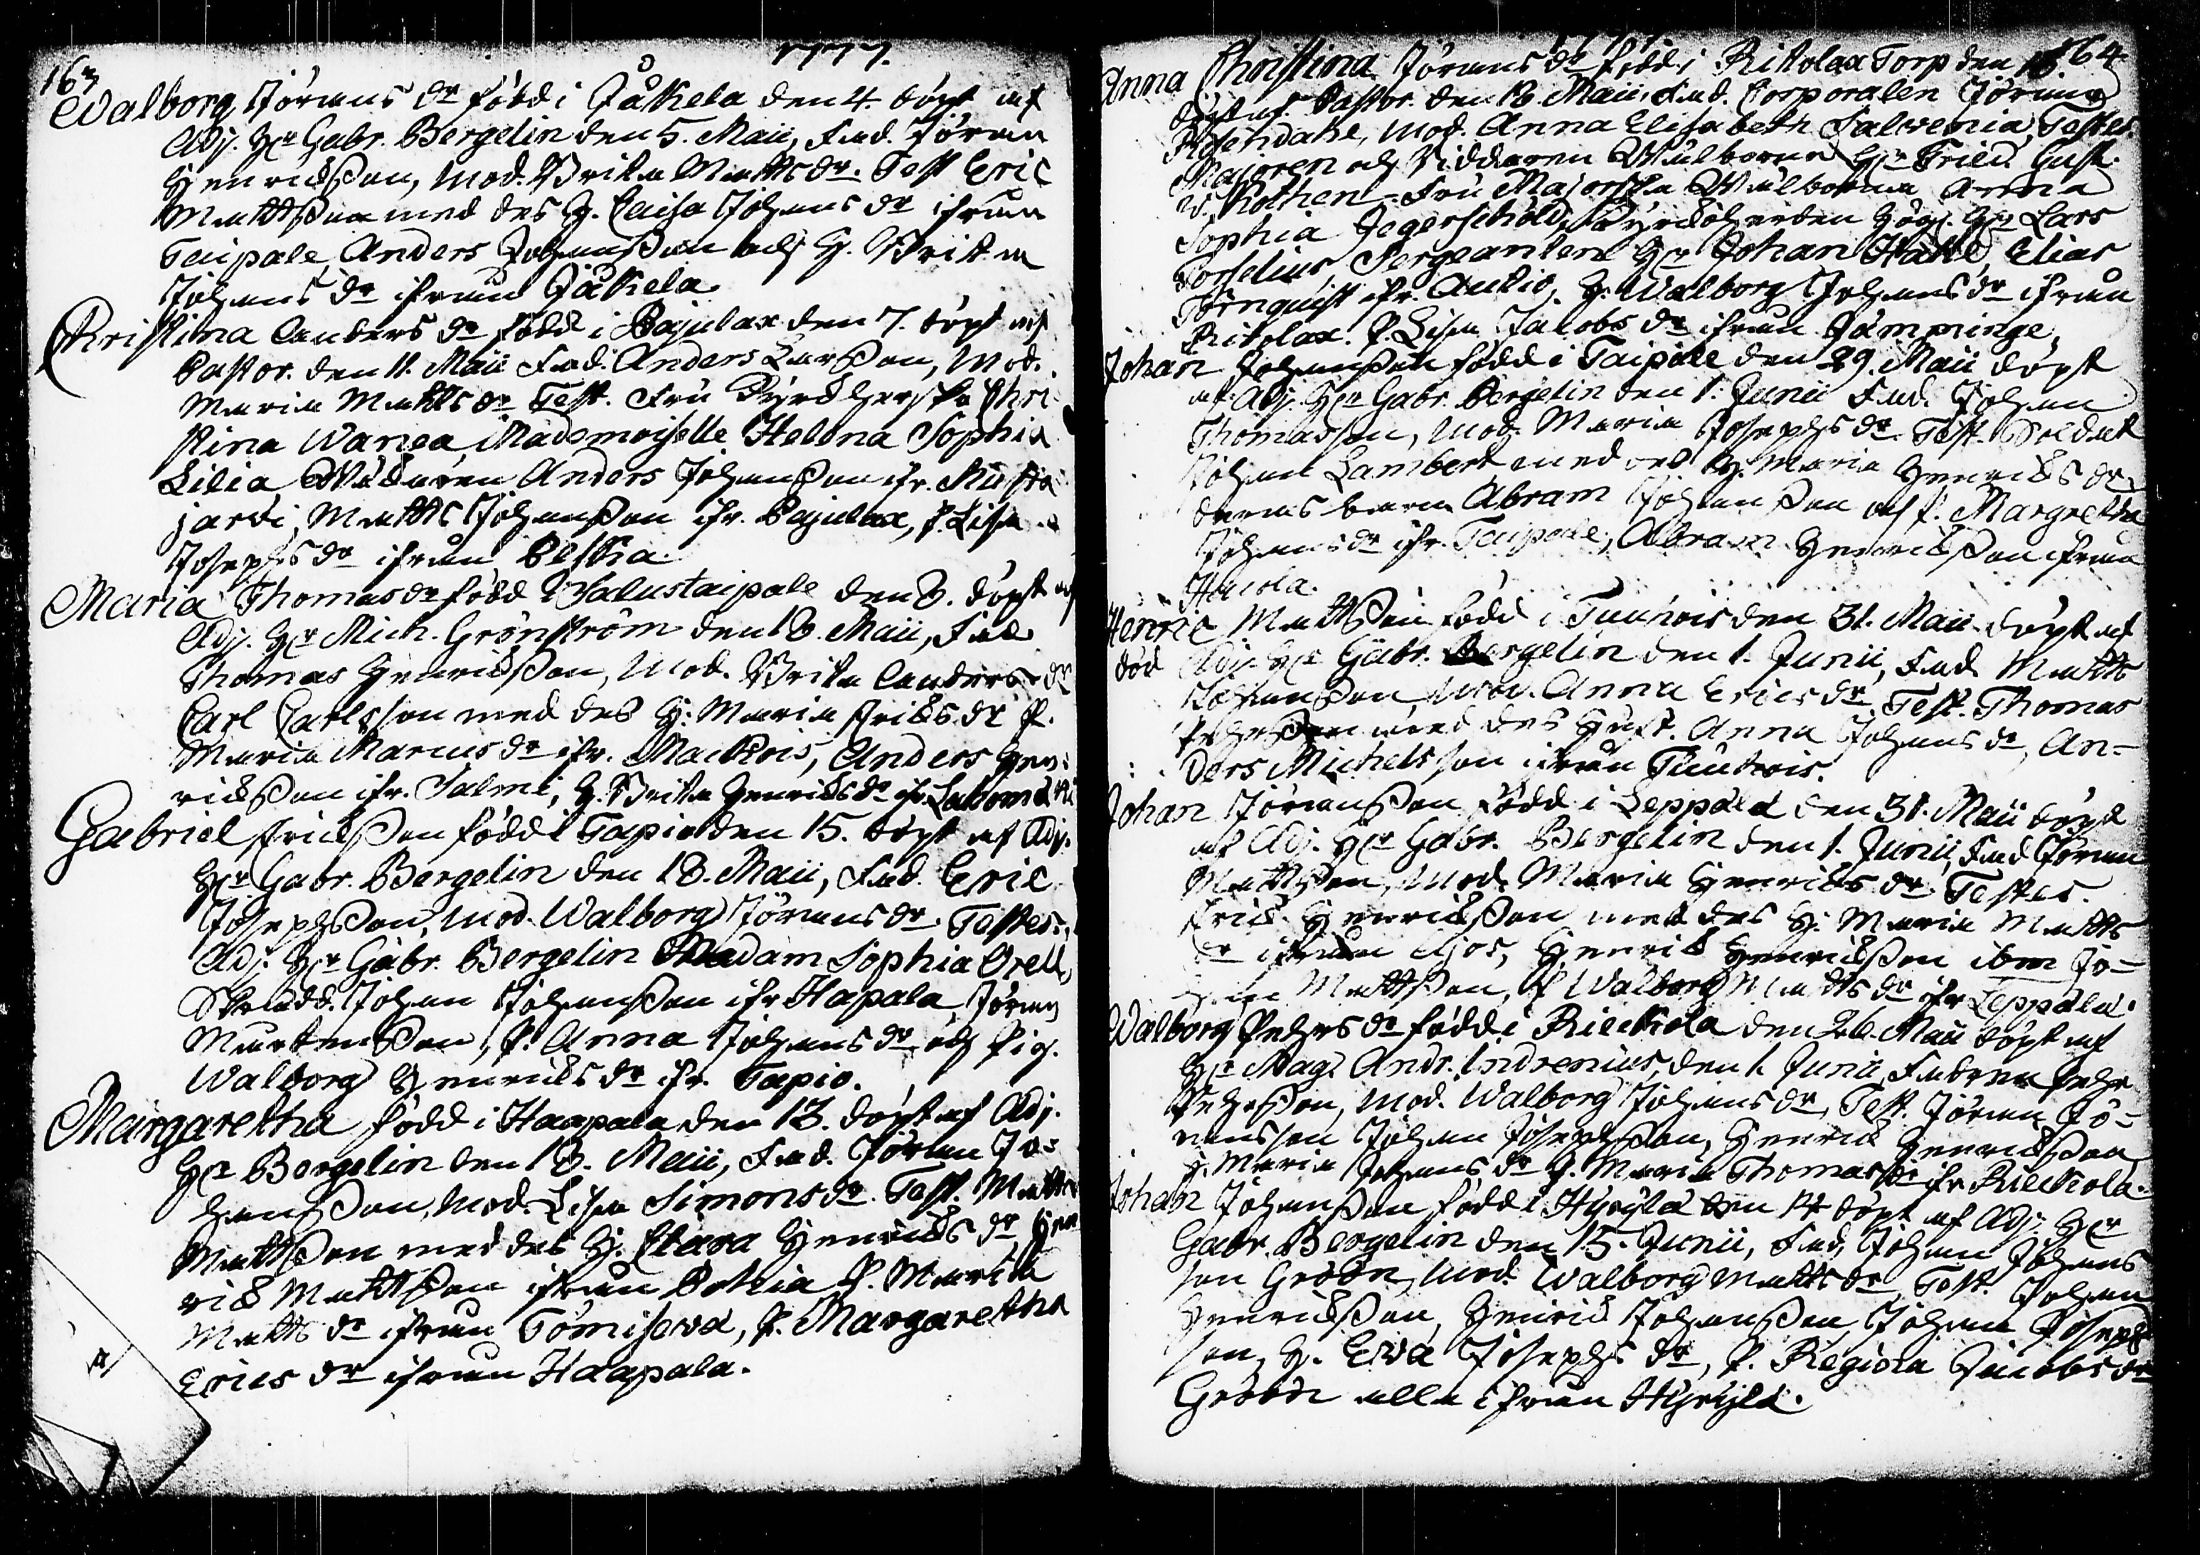 163
1777.
Walborg Jörans dr född i Jåkela den 4. döpt af
Adj. Hr Gabr. Bergelin den 5. Maii, Fad. Jöran
Henrichsson, Mod. Brita Matts dr. Test Eric
Mattsson med des H. Caisa Johans dr ifrån
Taipale, Anders Johansson och H. Brita
Johans dr ifrån Jåkela.
Christina Anders dr född i Pajulax den 7. döpt af
Pastor. den 11. Maii Fad. Anders Larsson, Mod.
Maria Matts dr Test. Fru Kyrckherskan Chri
stina Wanea, Mademoiselle Helena Sophia
Lilia, Anders Johansson ifr.
jarvi, Matts Johansson ifr. Pajulax, P. Lisa
Josephs dr ifrån Pellkia.
Maria Thomas dr född i Salustaipale den 8. döpt af
Adj. Hr Mich. Grönström den 18. Maii, Fad
Thomas Henrichsson, Mod. Brita Anders dr
Carl Carlsson med des H. Maria Erichs dr P.
Maria Marcus dr ifr. Mackois, Anders Hen-
richsson ifr. Salmi, H. Brita Henrichs dr ifr.
Gabriel Erichsson född i Tapio den 15. döpt af Adj.
Hr Gabr. Bergelin den 18. Maii, Fad. Eric
Josephsson, Mod. Walborg Jörans dr. Testes.
Adj. Hr Gabr. Bergelin Madam Sophia Orell,
Johan Johansson ifr Hapala, Jöran
Mårtensson, P. Anna Johans dr och Pig.
Walborg Henrichs dr ifr. Tapio.
Margaretha född i Haapala den 13. döpt af Adj.
Hr Bergelin den 18. Maii, Fad. Jöran Jo-
hansson, Mod. Lisa Simons dr. Test. Matts
Mattsson med des H. Clara Henrichs dr Hen
rich Mattsson ifrån P. Maria
Matts dr ifrån Tömiserva, P. Margaretha
Erics dr ifrån Haapala.
164
Anna Christina Jörans dr född i Ritolax Torp den
döpt af Pastor. den 18 Maii, Fad. Corporalen Jöran
Rosendahl, Mod. Anna Elisabeth Salvenia, Testes.
Majoren och Riddaren Wälborne Hr Fried. Gust.
v. Rothen Fru Majorska Wälborna Anna
Sophia Jegerschöld, Kyrckoherden Hög. Hr Lars
Forselius, Sergeanten Hr Johan Elias
Törnquist ifr. Autio, H. Walborg Johans dr ifrån
Ritolax. P. Lisa Jacobs dr ifrån Jämpinge.
Johan Johansson född i Taipale den 29. Maii döpt
af Adj. Hr Gabr. Bergelin den 1. Junii Fad. Johan
Thomasson, Mod. Maria Josephs dr. Test. Soldat
Johan Lambert med des H. Maria Henrichs dr
deras barn Abram Johansson och P. Margretha
Johans dr ifr. Taipale, Abram Henrichsson ifrån
Henric Mattsson född i Tuuhois den 31. Maii döpt af
död Adj. Hr Gabr. Bergelin den 1. Junii, Fad. Matts
Mod. Anna Erics dr. Test. Thomas
med des Hust. Anna Johans dr, An-
ders Michelsson ifrån Tuuhois.
Johan Jöransson född i Leppälä den 31. Maii döpt
af Adj. Hr Gabr. Bergelin den 1. Junii, Fad Jöran
Mattsson, Mod. Maria Henrichs dr. Testes.
Erich Henrichsson med des H. Maria Matts
dr ifrån, Henrich Henrichsson ibm Jo-
han Mattsson, P Walborg Matts dr ifr Leppälä.
Walborg Pehrs dr född i Rieckola den 26. Maii döpt af
Hr Mag. Andr. Indrenius, den 1. Junii, Fadren Pehr
Pehrsson, Mod. Walborg Johans dr, Test. Jöran Jö-
ransson Johan Josephsson, Henrich Henrichsson
H. Maria Johans dr P. Maria Thomas dr ifr Rieckola.
Johan Johansson född i Hyrylä den 14 döpt af Adj. Hr
Gabr. Bergelin den 15. Junii, Fad, Johan Johans
son Gröön, Mod. Walborg Matts dr Test. Johan
Henrichsson, Henrich Johansson, Johan Joseph
son, H. Eva Josephs dr, P. Regina Jacobs dr
Gröön alla ifrån Hyrylä.